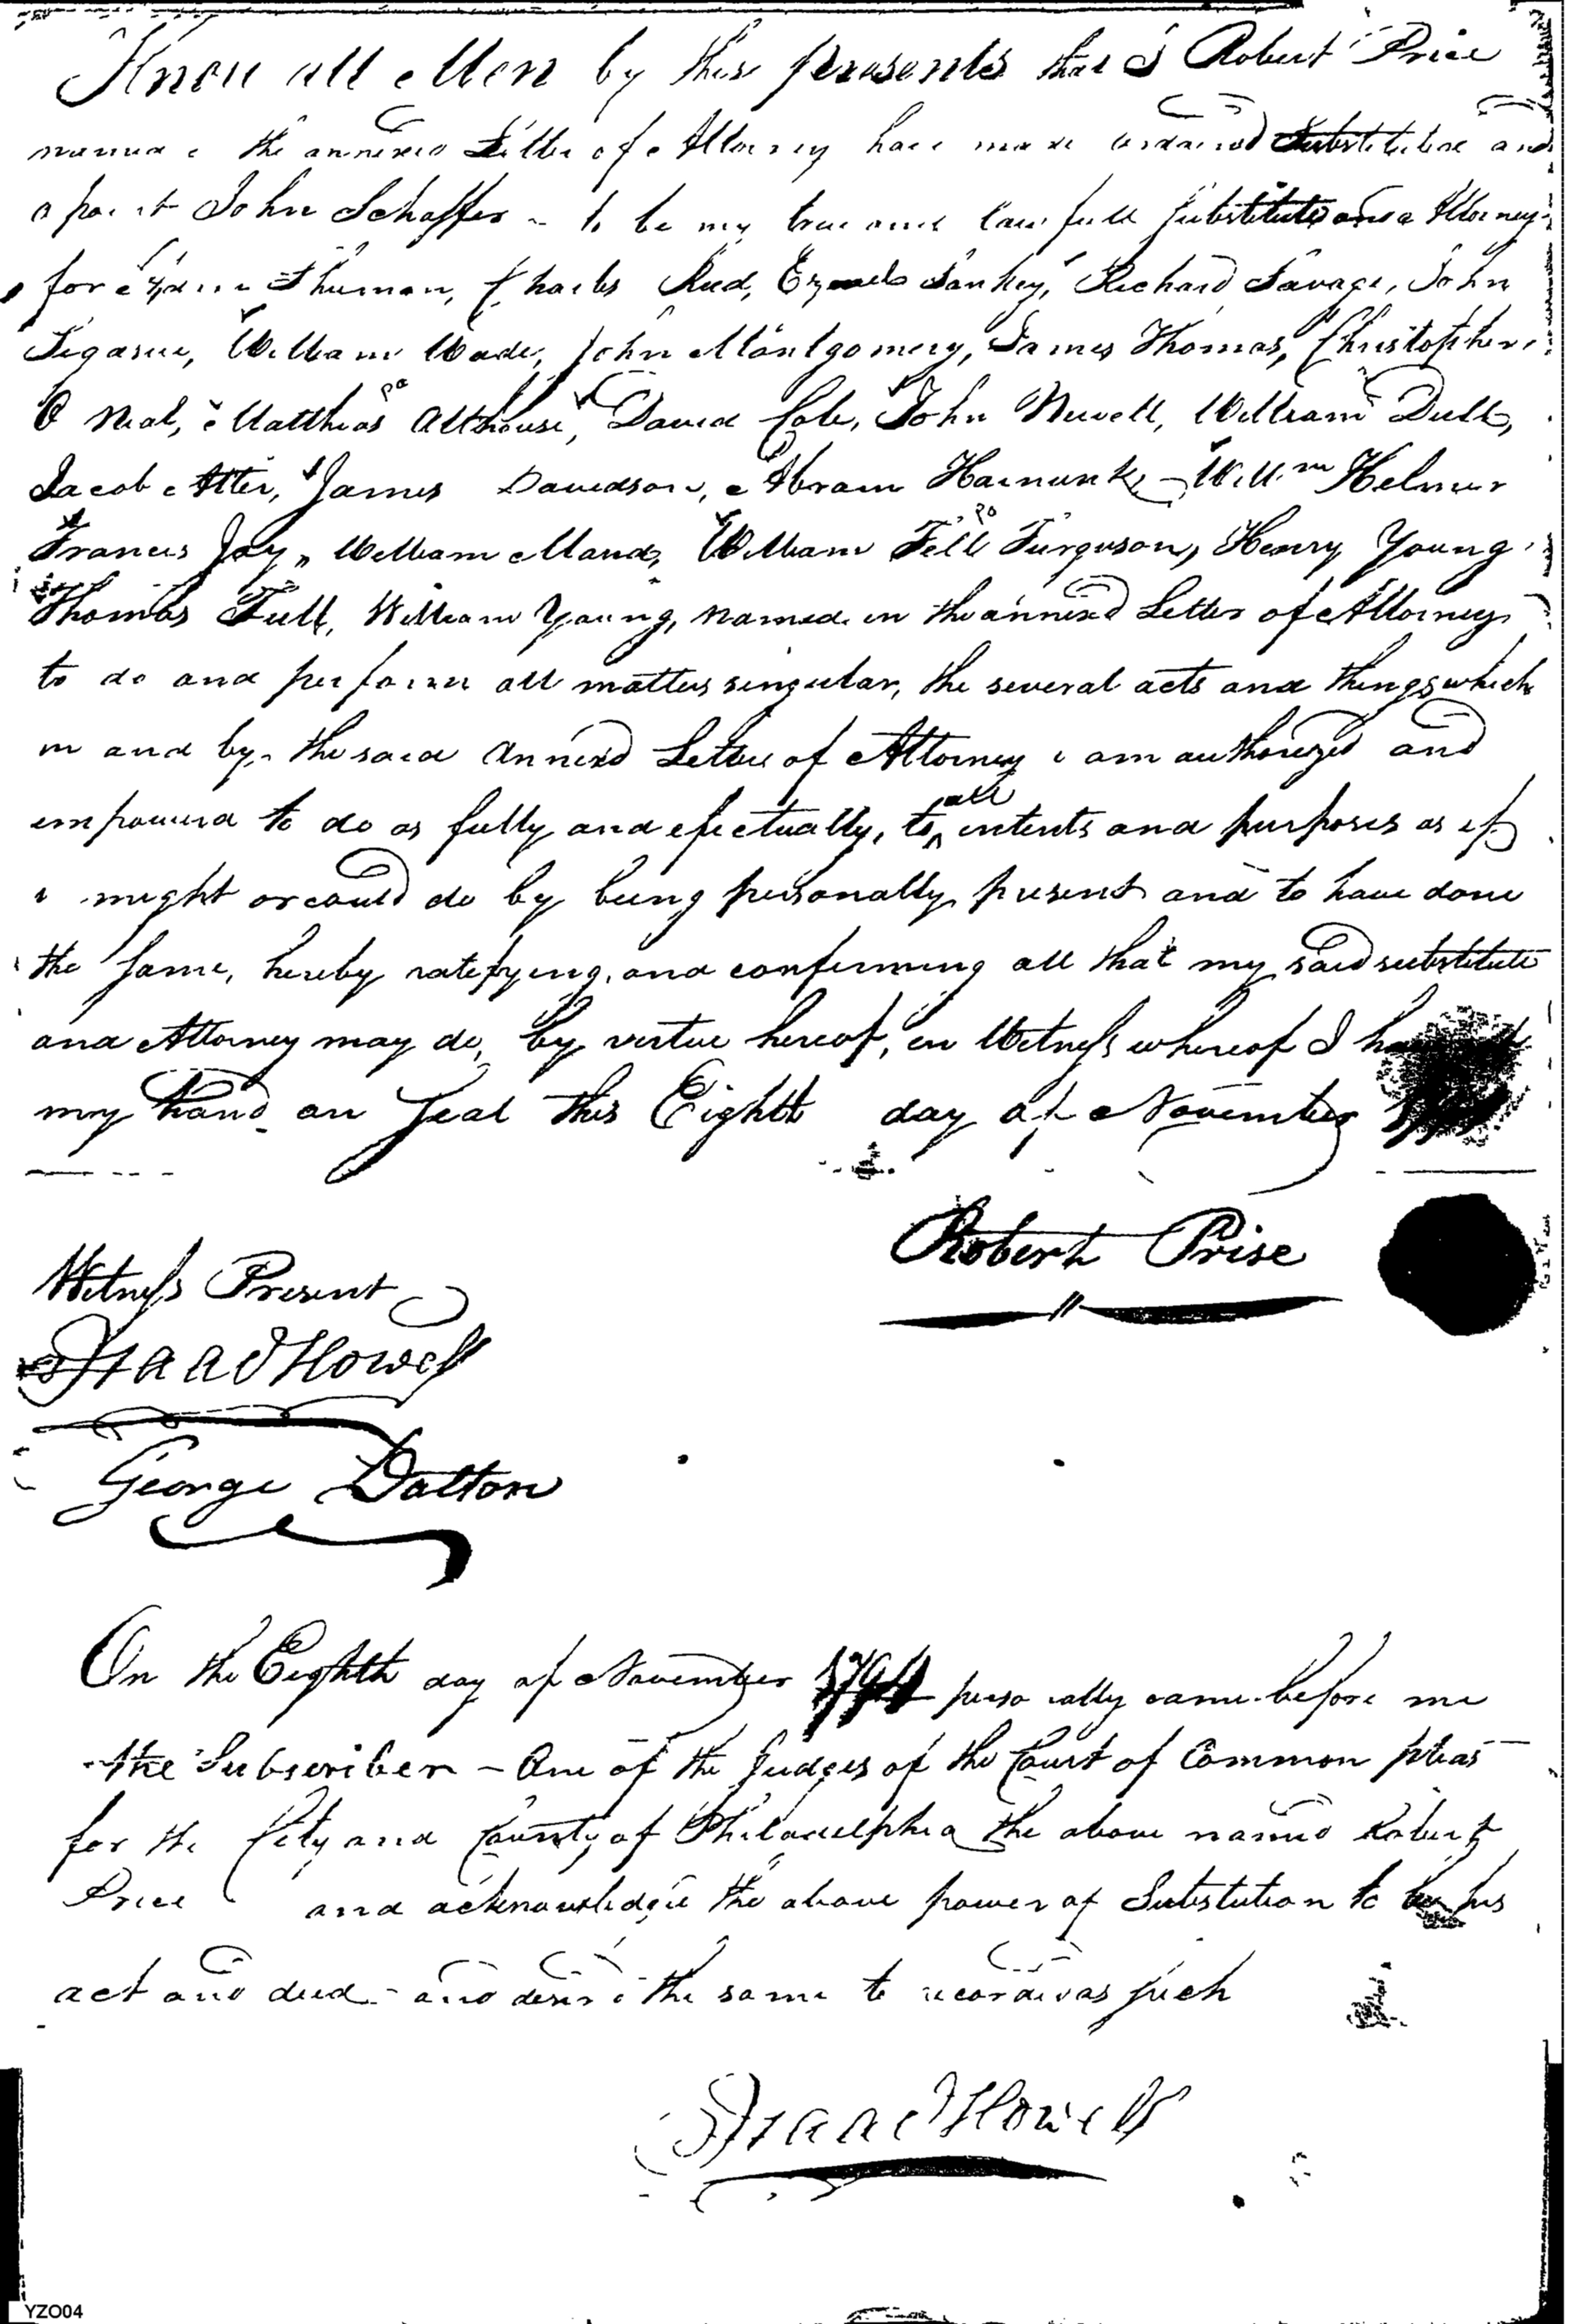 Know all Men by these presents that I Robert Price
named the annexed Letter of Attorney have made ordained Substitute and
apoint John Schaffer - to be my true and lawfull Substitute and Attorney
for Adam Shuman, Charles Reed, Sankey, Richard Savage, John
Segasue, William Wade, John Montgomery, James Thomas, Christopher
O Neal, Matthias Althouse, David Cole, John Newell, William Dull,
Jacob Atter, James Davidson, Abram Harnunk, Willm Helmer
Francis Joy, William Maud, William Fell Furguson, Henry Young
Thomas Tull, William Young, named in the annexd Letter of Attorney
to do and perform all matters singular, the several acts and things which
in and by the said Annexd Letter of Attorney i am authorized and
empowered to do as fully and efectually, to all intents and purposes as if
i might or could do by being personally present and to have done
the same, hereby ratefying and confirming all that my said substitute
and Attorney may do, by virtue hereof, in Witness whereof I
my hand an Seal this Eighth day of November
Robert Prise
Witness Present
Isaac Howell
George Dalton
On the Eighth day of November 1794 personally came before me
the Subscriber - One of the Judges of the Court of Common pleas
for the City and County of Philadelphia the above named Robert
Price and acknowledgee the above power of Substution to be his
act and deed - and desire the same to recorded as such
Isaac Howell
YZO04